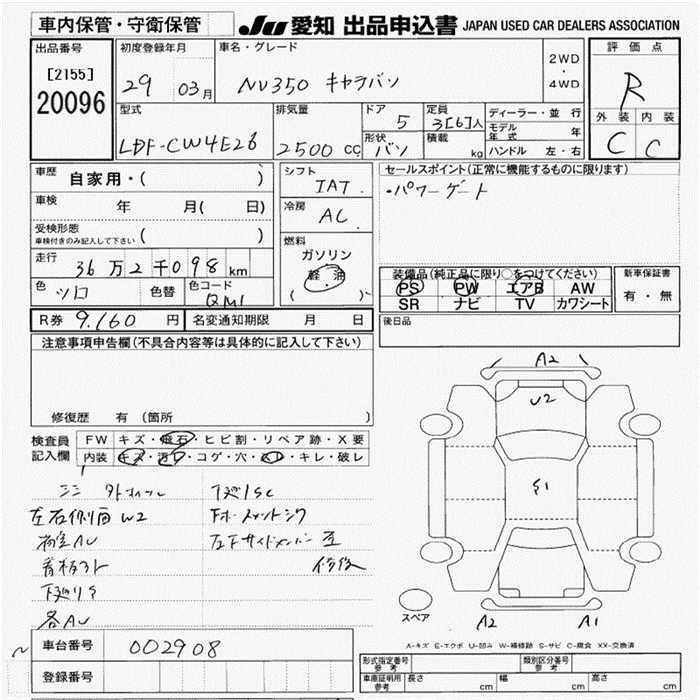 車内保管・守衛保管
JU 愛知 出品申込書 JAPAN USED CAR DEALERS ASSOCIATION
出品番号
[2155]
20096
初度登録年月
29 03月
車名・グレード
NV350 キャラバン
2WD
・
4WD
評価点
R
外装 内装
C C
型式
LDF-CW4E26
排気量
2500 cc
ドア
5
形状
バン
定員
3[6]人
積載
kg
ディーラー・並行
モデル年式 年
ハンドル 左・右
車歴 自家用・( )
車検 年 月( 日)
受検形態
車検付きのみ記入して下さい ( )
走行 36万2千098km
色 シロ 色替 色コード QM1
シフト
IAT
冷房
AC
燃料
ガソリン
軽油
( )
セールスポイント(正常に機能するものに限ります)
・パワーゲート
装備品(純正品に限り○をつけてください)
PS PW エアB AW
SR ナビ TV カワシート
新車保証書
有・無
R券 9,160 円 名変通知期限 月 日
後日品
注意事項申告欄(不具合内容等は具体的に記入して下さい)
修復歴 有 (箇所
検査員
記入欄
FW キズ・飛石・ヒビ割・リペア跡・X要
内装 キズ・汚レ・コゲ・穴・スレ・キレ・破レ
下廻りSC
左右側面 W2
下廻りS
修復
A2
U2
S1
A2
A1
スペア
A-キズ E-エクボ U-凹み W-補修跡 S-サビ C-腐食 XX-交換済
車台番号 002908
登録番号
形式指定番号
参考
類別区分番号
参考
車庫証明用
参考
長さ cm 幅 cm 高さ cm